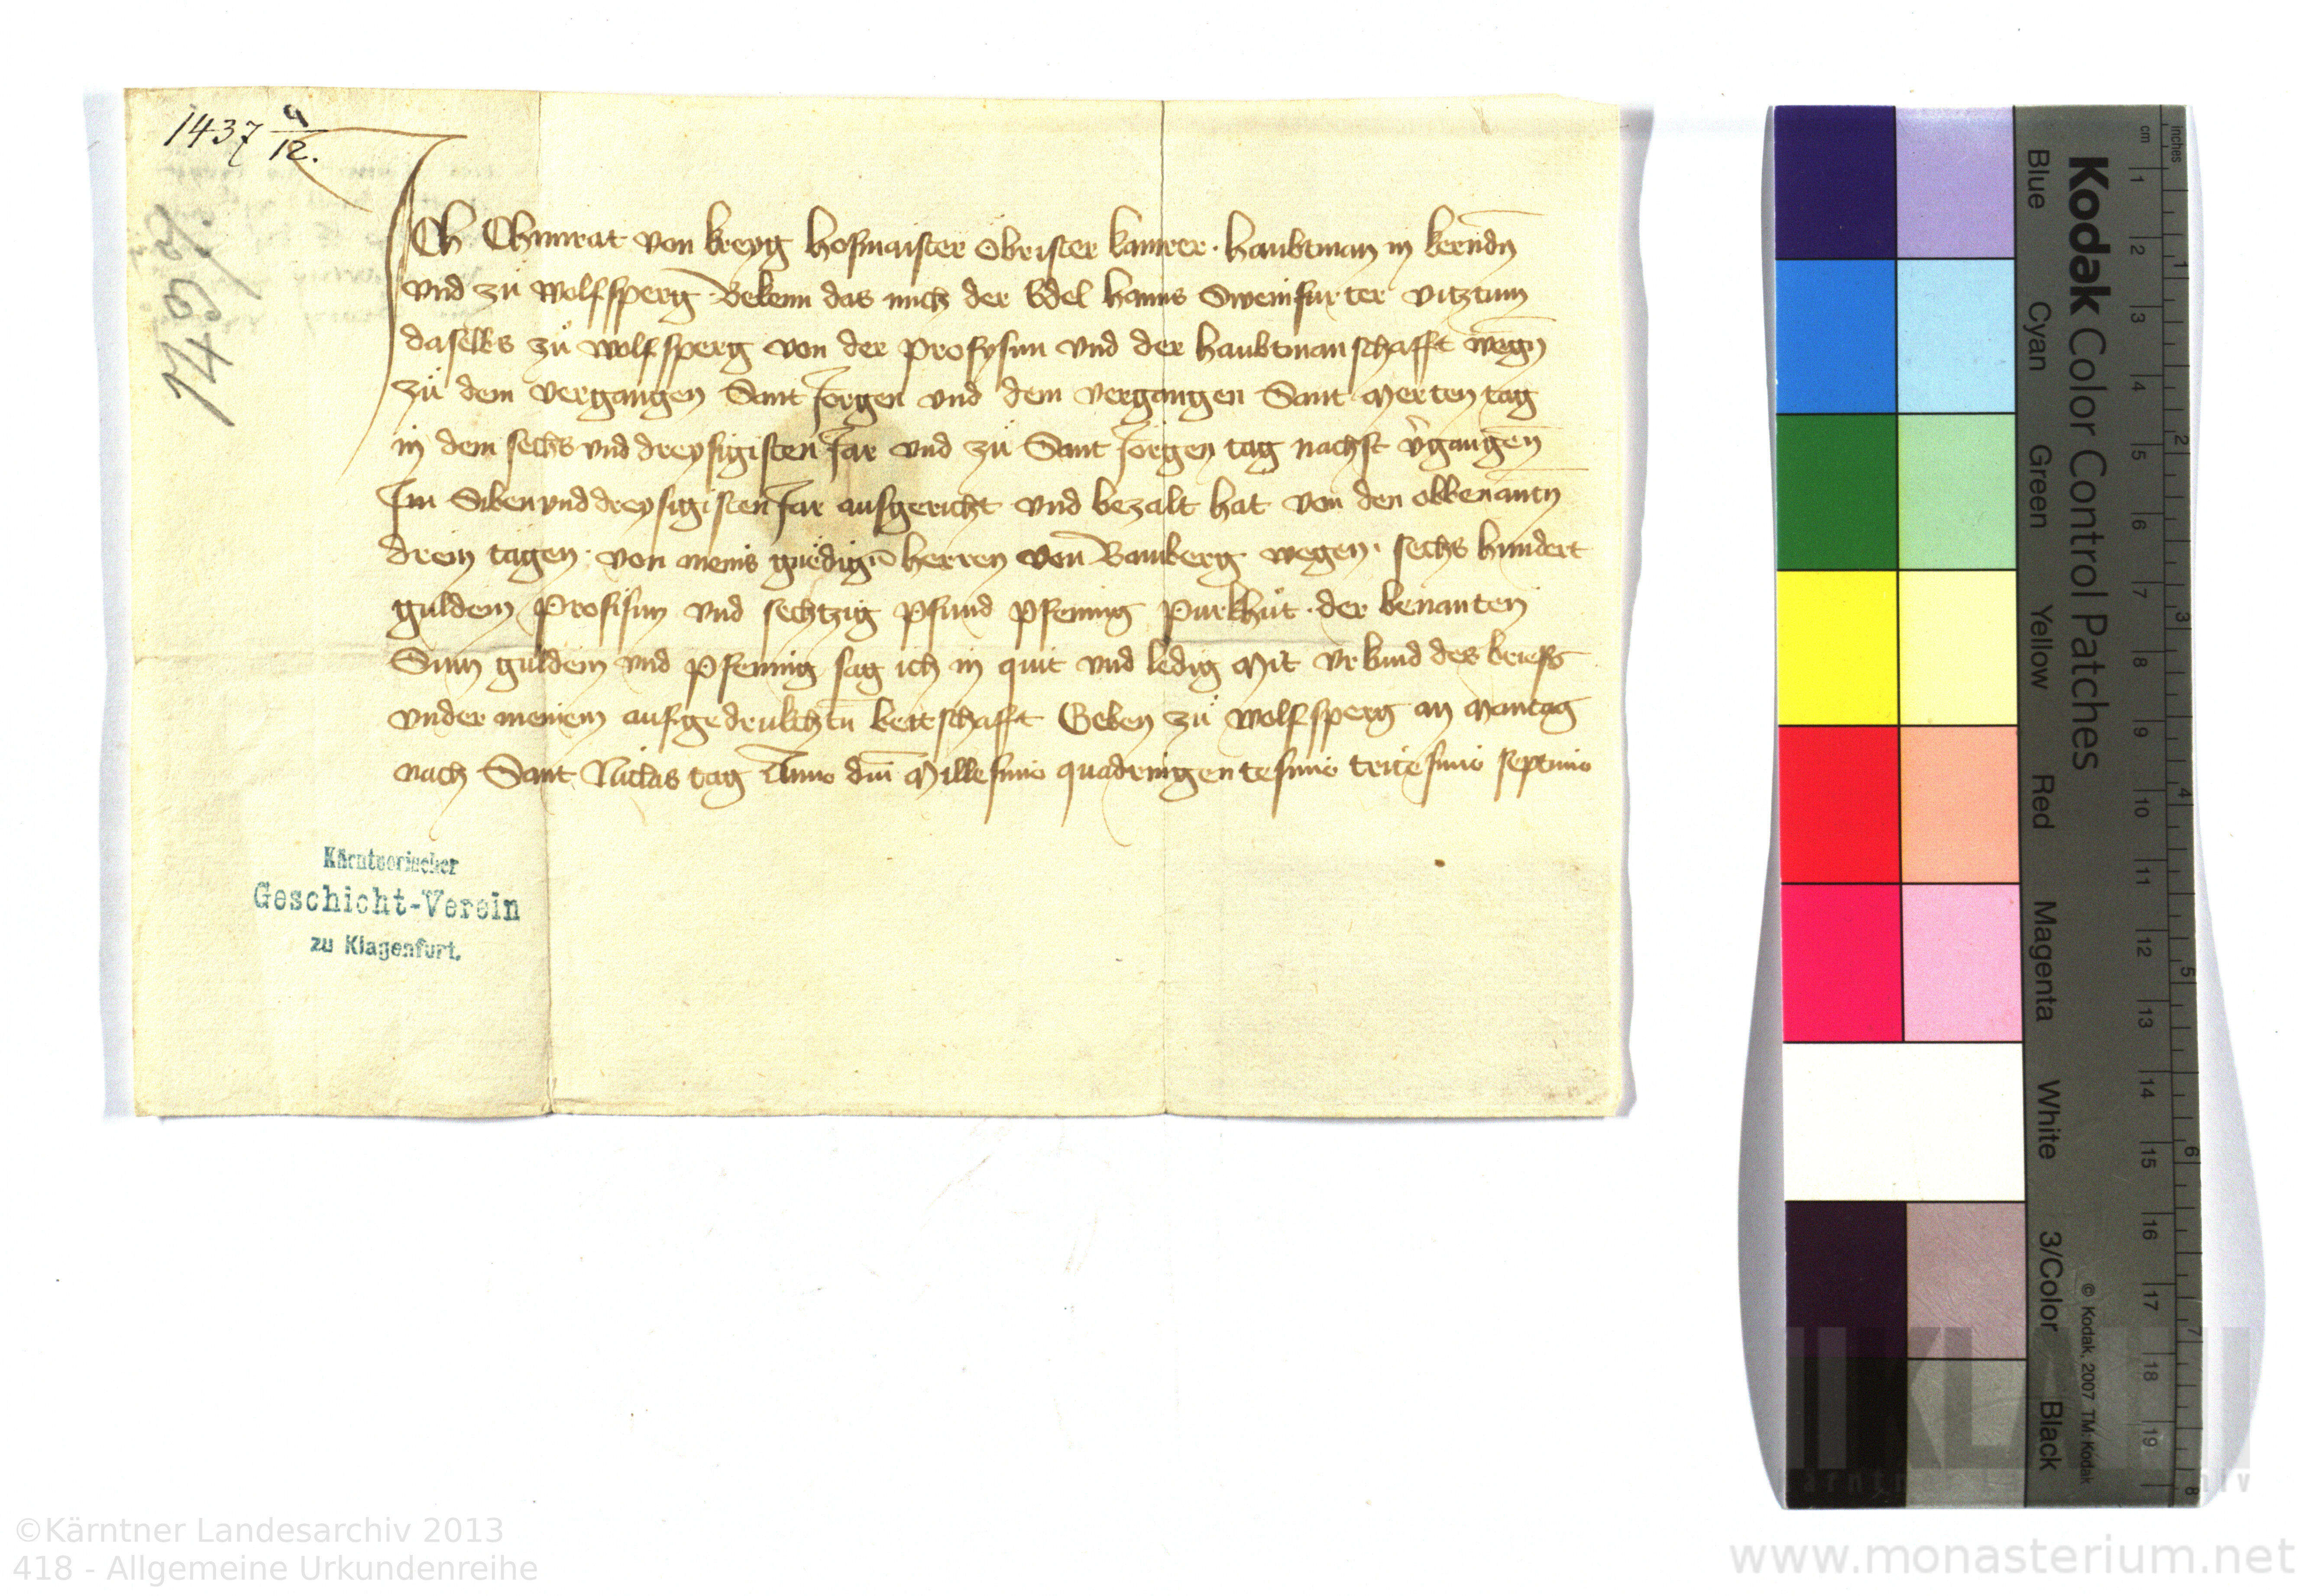 1437 9/12.
Ich Chunrat von kreyg hofmaister Obrister kamrer · haubtman in kerndn
vnd zů wolfsperg Bekenn das mich der Edel hanns Sweinfurter vitztum
daselbs zů wolfsperg von der profysun vnd der haubtmanschafft wegn
zů dem vergangen Sant Jorgen vnd dem vergangen Sant Merten tag
in dem sechs vnd dreysigisten Jar vnd zů Sant Jorgen tag nachst vergangen
Im Siben vnd dreysigisten Jar ausgericht vnd bezalt hat von den obbenantn
drein tagen · von meins gnedign herren von Bamberg wegen · sechs hundert
guldein Profisun vnd sechtzig pfund pfening purkhůt · der benanten
Sum guldein vnd pfening sag ich in quit vnd ledig Mit vrkund des briefs
vnder meinem aufgedrukchtn betschafft Geben zů wolfsperg an Mantag
nach Sant Niclas tag Anno dni Millesimo quadringentesimo tricesimo septimo
Kärntnerischer
Geschicht-Verein
zu Klagenfurt.
Kodak Color Control Patches
Blue Cyan Green Yellow Red Magenta White 3/Color Black
© Kodak, 2007 TM: Kodak
inches
cm
1 2 3 4 5 6 7 8 9 10 11 12 13 14 15 16 17 18 19
1 2 3 4 5 6 7 8
©Kärntner Landesarchiv 2013
418 - Allgemeine Urkundenreihe
www.monasterium.net